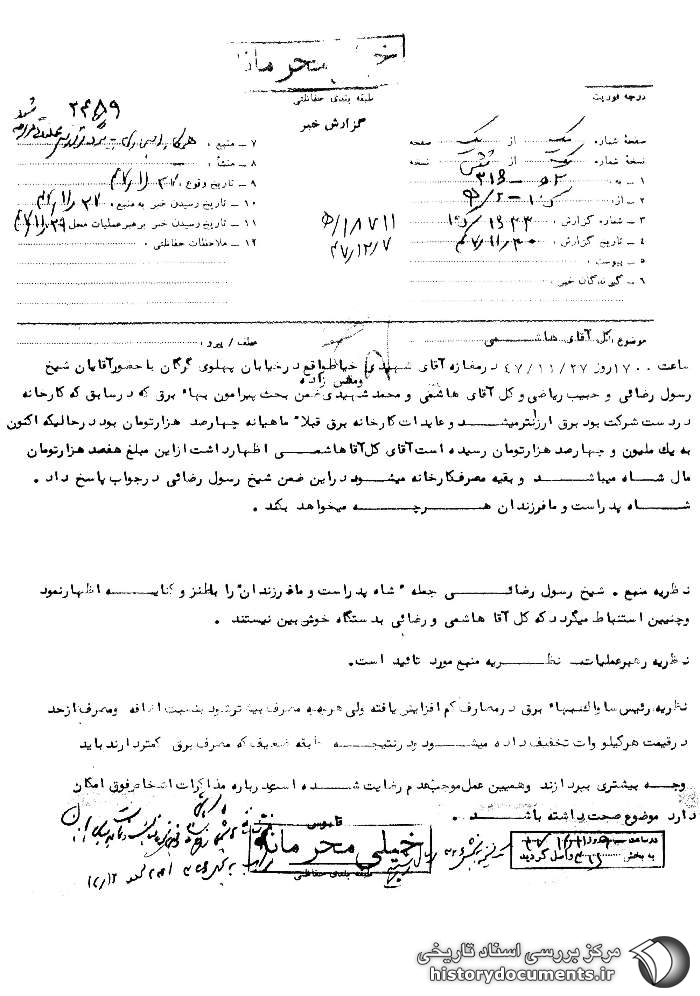 خیلی محرمانه
طبقه بندی حفاظتی
گزارش خبر
درجه فوریت
صفحهٔ شماره یک از یک صفحه
نسخهٔ شماره یک از شش نسخه
۱ – به ۳۱۶ – ۵۲
۲ – از
۳ – شماره گزارش
۴ – تاریخ گزارش ۴۷/۱۱/۳۰
۵ – پیوست
۶ – گیرندگان خبر
۷ – منبع
۲۴۸۹
۸ – منشاء
۹ – تاریخ وقوع ۴۷/۱۱/۲۷
۱۰ – تاریخ رسیدن خبر به منبع ۴۷/۱۱/۲۷
۱۱ – تاریخ رسیدن خبر برهبر عملیات محل ۴۷/۱۱/۲۹
۱۲ – ملاحظات حفاظتی
۵/۱۸۷۱۱
۴۷/۱۲/۷
موضوع: کل آقای هاشمی عطف / پیرو
ساعت ۱۷۰۰ روز ۴۷/۱۱/۲۷ در مغازه آقای شهیدی خیاط واقع در خیابان پهلوی گرگان با حضور آقایان شیخ
رسول رضائی و حبیب ریاضی و کل آقای هاشمی و محمد شهیدی ضمن بحث پیرامون بهاء برق که در سابق که کارخانه
در دست شرکت بود برق ارزانتر میشد و عایدات کارخانه برق قبلا ماهیانه چهارصد هزار تومان بود در حالیکه اکنون
به یک ملیون و چهارصد هزار تومان رسیده است آقای کل آقا هاشمی اظهار داشت از این مبلغ هفصد هزار تومان
مال شاه میباشد و بقیه مصرف کارخانه میشود در این ضمن شیخ رسول رضائی در جواب پاسخ داد .
شاه پدر است و ما فرزندان هرچه میخواهد بکند .
نظریه منبع . شیخ رسول رضائی جمله " شاه پدر است و ما فرزندان" را با طنز و کنایه اظهار نمود
و چنین استنباط میگردد که کل آقا هاشمی و رضائی بدستگاه خوش بین نیستند .
نظریه رهبر عملیات نظریه منبع مورد تائید است.
نظریه رئیس ساواک بهاء برق در مصارف کم افزایش یافته ولی هرچه مصرف بیشتر شود بنسبت اضافه و مصرف از حد
در قیمت هر کیلو وات تخفیف داده میشود و در نتیجه طبقه ضعیف که مصرف برق کمتر دارند باید
وجه بیشتری بپردازند و همین عمل موجب عدم رضایت شده است درباره مذاکرات اشخاص فوق امکان
دارد موضوع صحت داشته باشد .
خیلی محرمانه
طبقه بندی حفاظتی
به بخش ۳۱۶ واصل گردید
مرکز بررسی اسناد تاریخی
historydocuments.ir